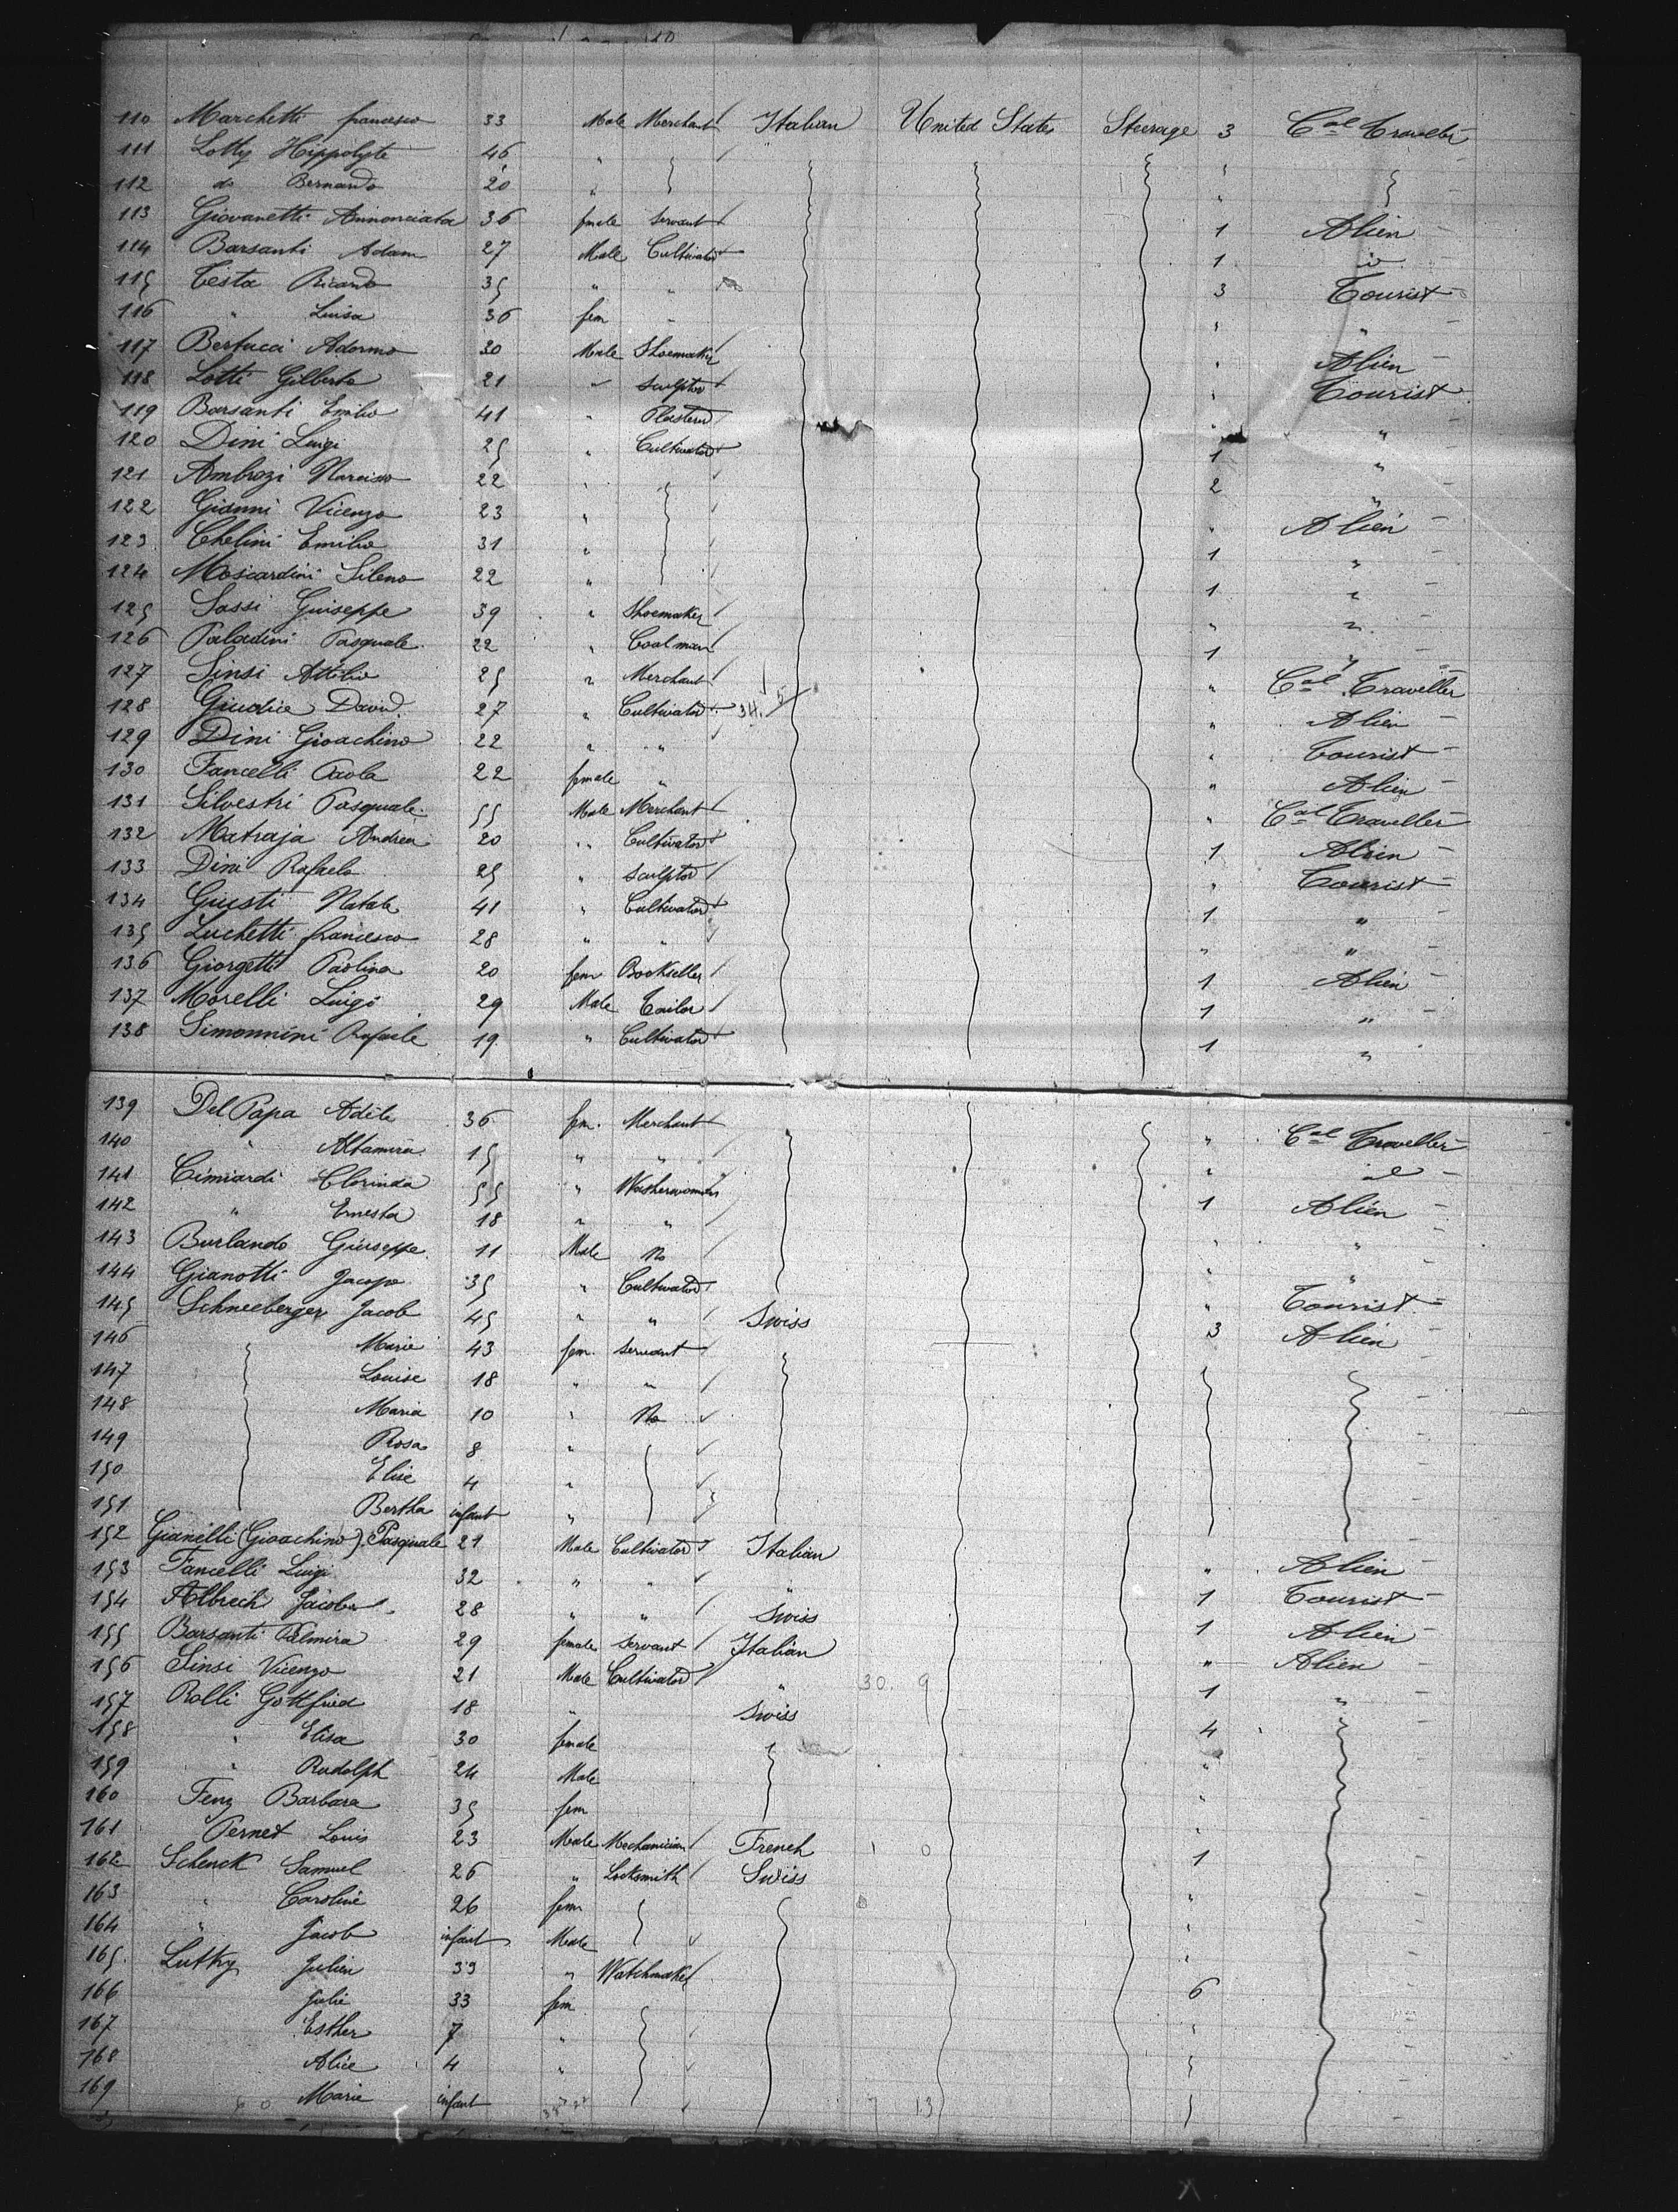 110 Marchetti francesco 33 Male Merchant Italian United States Steerage 3 Cal Traveller
111 Lotty Hippolyte 46 "
112 do Bernardo 20 " "
113 Giovanetti Annonciata 36 fmale servant 1 Alien
114 Barsanti Adam 27 Male Cultivator 1 id
115 Testa Ricardo 35 " " 3 Tourist
116 " Luisa 36 fem " "
117 Bertucci Adormo 30 Male Shoemaker " Alien
118 Lotti Gilberto 21 " sculptor " Tourist
119 Barsanti Emilio 41 " Plasterer " "
120 Dini Luigi 25 " Cultivator 1 "
121 Ambrozi Narciso 22 " 2 "
122 Gianni Vicenzo 23 " " Alien
123 Chelini Emilio 31 " 1 "
124 Moscardini Sileno 22 " 1 "
125 Sassi Guiseppe 39 " Shoemaker " "
126 Paladini Pasquale 22 " Coalman 1 "
127 Sinsi Attilio 25 " Merchant " Cal Traveller
128 Giudice David 27 " Cultivator 34. " Alien
129 Dini Gioachino 22 " " " Tourist
130 Fancelli Paola 22 fmale " " Alien
131 Silvestri Pasquale 55 Male Merchant " Cal Traveller
132 Matraja Andrea 20 " Cultivator 1 Alien
133 Dini Rafaelo 25 " sculptor " Tourist
134 Giusti Natale 41 " Cultivator 1 "
135 Luchetti francesco 28 " " " "
136 Giorgetti Paolina 20 fem Bookseller 1 Alien
137 Morelli Luigi 29 Male Tailor 1 "
138 Simonnini Rafaele 19 " Cultivator 1 "
139 Del Papa Adele 36 fem. Merchant " Cal Traveller
140 " Altamira 15 " " "
141 Cimiardi Clorinda 55 " Washerwoman 1 Alien
142 " Ernesta 18 " " " "
143 Burlando Giuseppe 11 Male No " "
144 Gianotti Jacopo 35 " Cultivator " Tourist
145 Schneeberger Jacob 45 " " Swiss 3 Alien
146 Marie 43 fem. servant
147 Louise 18 " "
148 Maria 10 " No
149 Rosa 8 "
150 Elise 4 "
151 Bertha infant "
152 Gianelli (Gioachino) Pasquale 21 Male Cultivator Italian " Alien
153 Fancelli Luigi 32 " " " 1 Tourist
154 Albrech Jacob 28 " " Swiss 1 Alien
155 Barsanti Palmira 29 female servant Italian " Alien
156 Sinsi Vicenzo 21 Male Cultivator " 30. 9 1 "
157 Rolli Gottfried 18 " Swiss 4
158 " Elisa 30 female "
159 " Rudolph 24 Male "
160 Fenz Barbara 35 fem "
161 Pernet Louis 23 Male Mechanician French 1
162 Schenck Samuel 26 " Locksmith Swiss "
163 " Caroline 26 fem "
164 " Jacob infant Male "
165. Luthy Julien 33 " Watchmaker 6
166 Julie 33 fem "
167 Esther 7 "
168 Alice 4 "
169 Marie infant